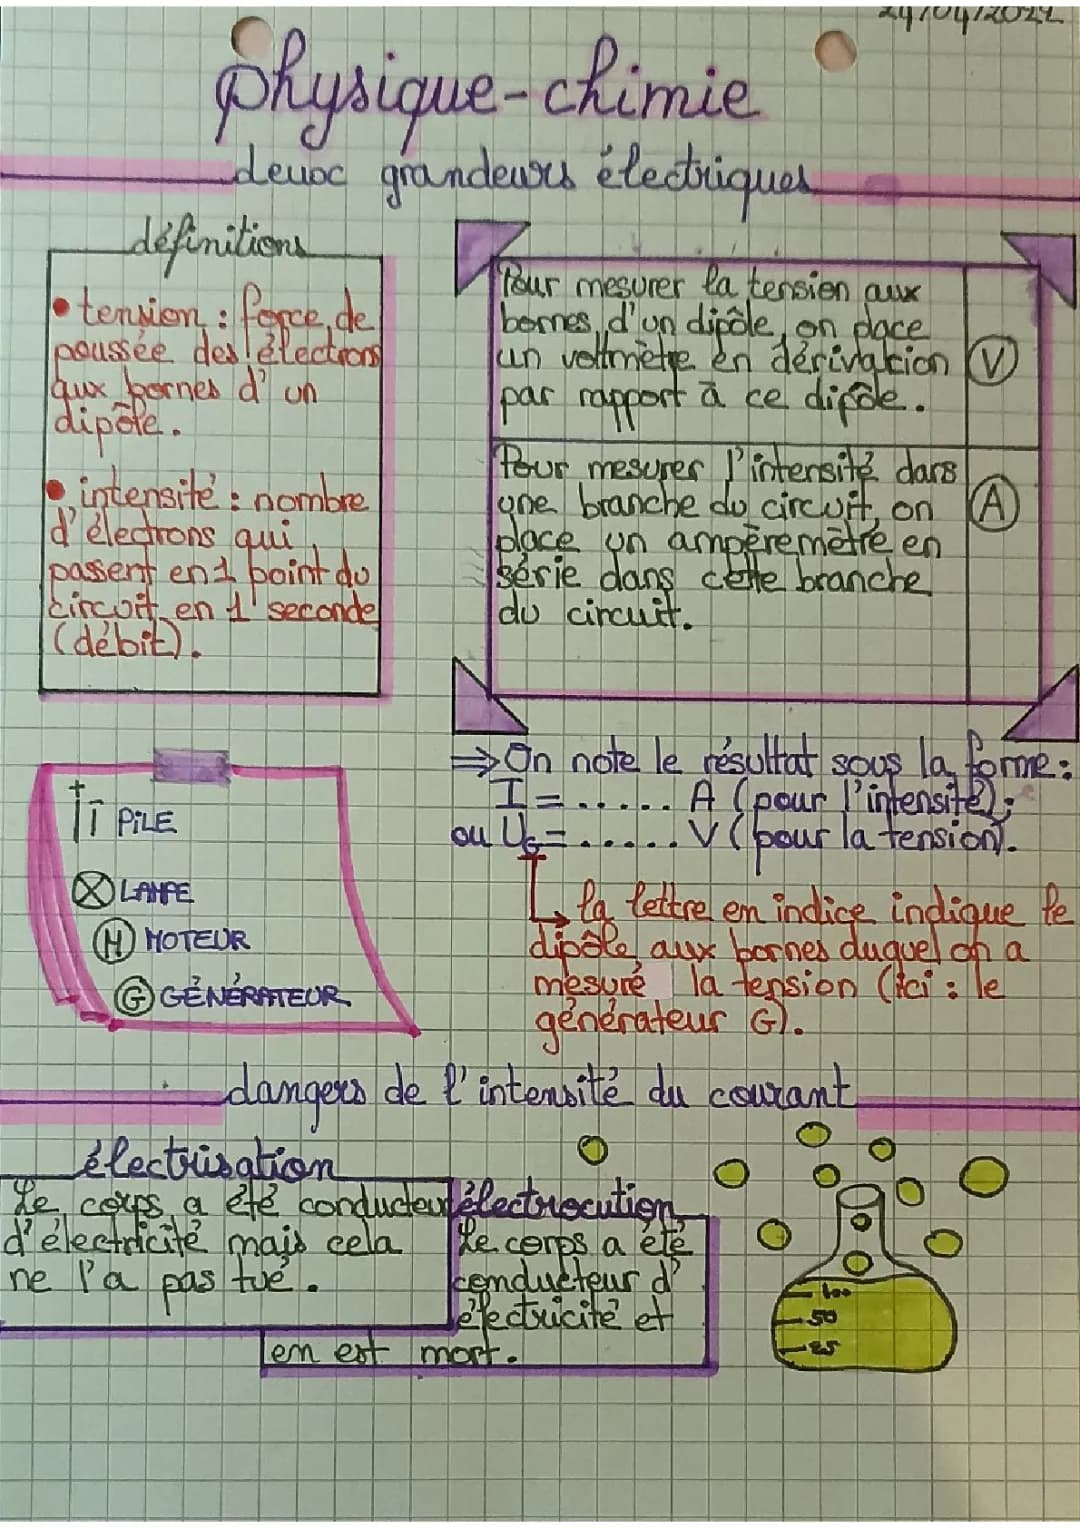 24/04/2022
physique-chimie
deux grandeurs électriques
définitions
• tension : force de
poussée des électrons
aux bornes d'un
dipôle.
• intensité : nombre
d'électrons qui
passent en 1 point du
circuit en 1 seconde
(débit).
Pour mesurer la tension aux
bornes d'un dipôle, on place
un voltmètre en dérivation
par rapport à ce dipôle.
V
Pour mesurer l'intensité dans
une branche du circuit, on
place un ampèremètre en
série dans cette branche
du circuit.
A
⇒ On note le résultat sous la forme :
I = ..... A (pour l'intensité);
ou UG = ...... V (pour la tension).
la lettre en indice indique le
dipôle aux bornes duquel on a
mesuré la tension (ici : le
générateur G).
+ -
PILE
LAMPE
M MOTEUR
G GÉNÉRATEUR
dangers de l'intensité du courant
électrisation
Le corps a été conducteur
d'électricité mais cela
ne l'a pas tué.
électrocution
Le corps a été
conducteur d'
électricité et
en est mort.
100
50
25